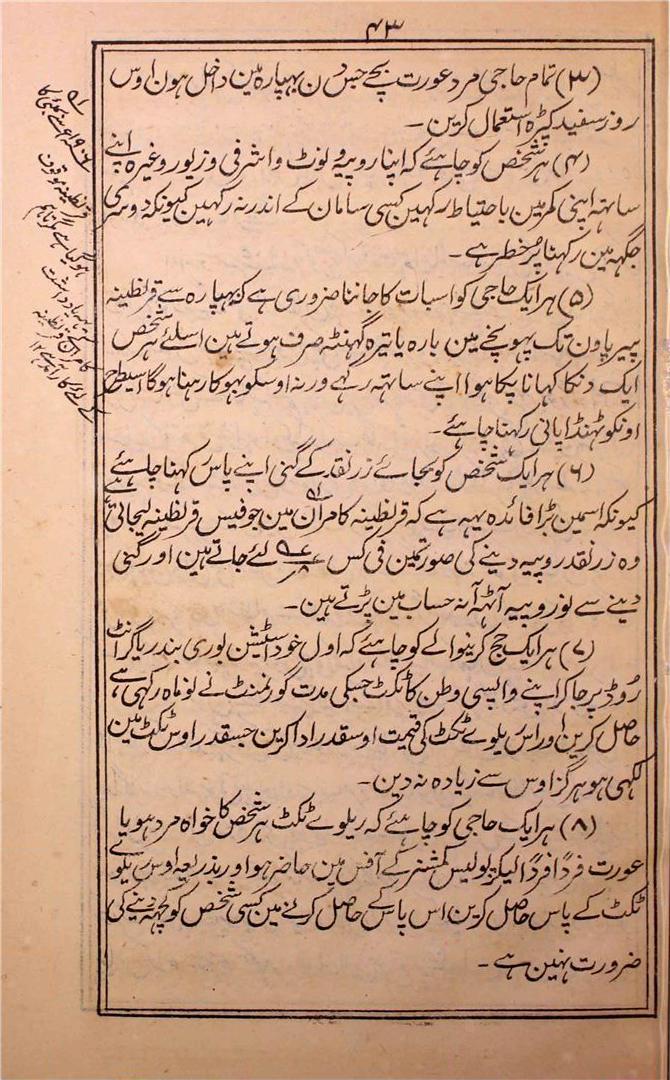 ۴۳
(۳) تمام حاجی مرد عورت بچے جس دن بہپارہ مین داخل ہون اوس
روز سفید کپڑہ استعمال کرین۔
(۴) ہر شخص کو چاہئے کہ اپنا روپیہ و نوٹ و اشرفی و زیور وغیرہ اپنے
ساتہہ اپنی کمر مین باحتیاط رکہین کسی سامان کے اندر نہ رکہین کیونکہ دوسری
جگہہ مین رکہنا پر خطر ہے۔
(۵) ہر ایک حاجی کو اسبات کا جاننا ضروری ہے کہ بہپارہ سے قرنطینہ
پیرپاون تک پہونچنے مین بارہ یا تیرہ گہنٹہ صرف ہوتے ہین اسلئے ہر شخص
ایک دنکا کہانا پکا ہوا اپنے ساتہہ رکہے ورنہ اوسکو بہوکا رہنا ہوگا اسیطرح
اونکو ٹہنڈا پانی رکہنا چاہئے۔
(۶) ہر ایک شخص کو بجائے زر نقد کے گنی اپنے پاس رکہنا چاہئے
کیونکہ اسمین بڑا فائدہ یہہ ہے کہ قرنطینہ کامران مین جو فیس قرنطینہ لیجاتی ہے
وہ زر نقد روپیہ دینے کی صورتمین فی کس لئے جاتے ہین اور گنی
دینے سے نو روپیہ آٹہہ آنہ حساب مین پڑتے ہین۔
(۷) ہر ایک حج کرنیوالے کو چاہئے کہ اول خود اسٹیشن بوری بندر یا گرانٹ
روڈ پر جا کر اپنے واپسی وطن کا ٹکٹ جسکی مدت گورنمنٹ نے نو ماہ رکہی ہے
حاصل کرین اور اس ریلوے ٹکٹ کی قیمت اوسقدر ادا کرین جسقدر اوس ٹکٹ مین
لکہی ہو ہرگز اوس سے زیادہ نہ دین۔
(۸) ہر ایک حاجی کو چاہئے کہ ریلوے ٹکٹ ہر شخص کا خواہ مرد ہو یا
عورت فرداً فرداً لیکر پولیس کمشنر کے آفس مین حاضر ہو اور بذریعہ اوس ریلوے
ٹکٹ کے پاس حاصل کرین اس پاس کے حاصل کرنے مین کسی شخص کو کچہہ دینے کی
ضرورت نہین ہے۔
۱۹۰۶ء سے بمبئی کا
قرنطینہ موقوف
ہوگیا ہے